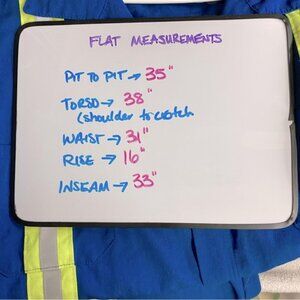 FLAT MEASUREMENTS
PIT TO PIT → 35"
TORSO → 38"
(shoulder to crotch
WAIST → 31"
RISE → 16"
INSEAM → 33"